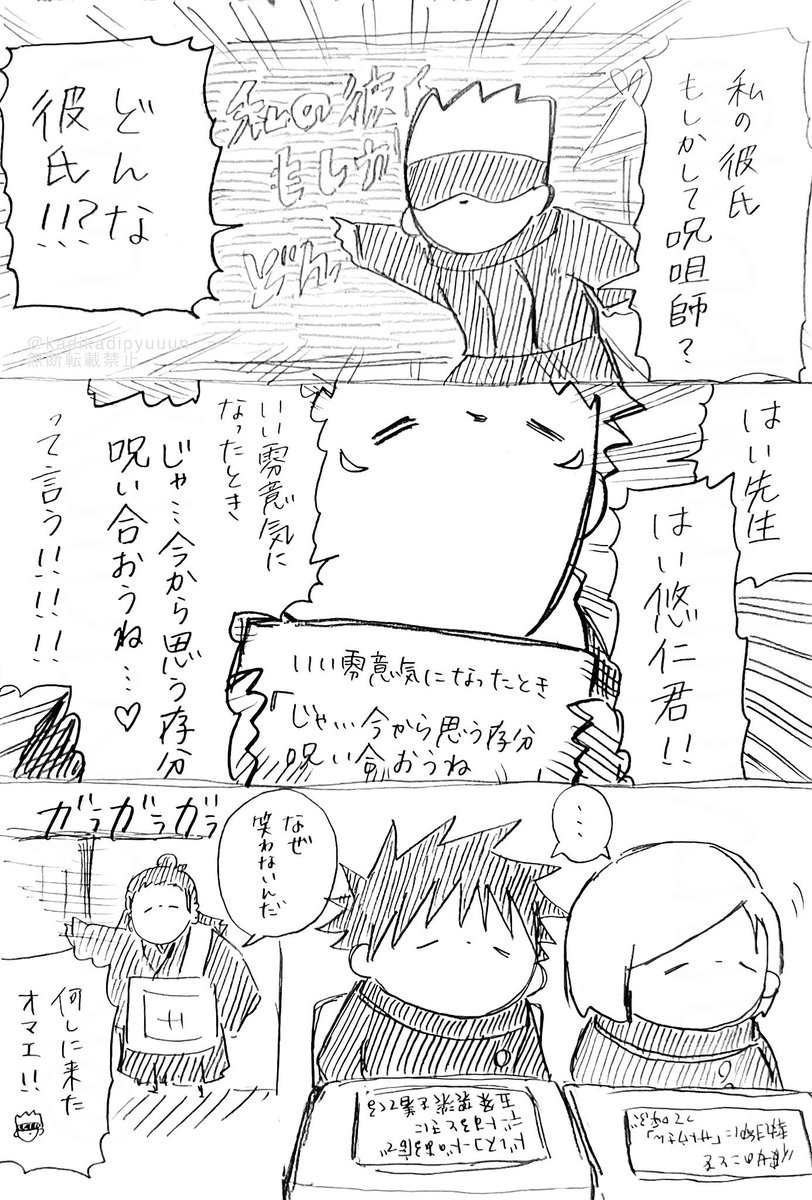 私の彼氏
もしかして呪咀師?
私の彼氏
もしか
どん
どんな
彼氏!!?
@kadikadipyuuun
無断転載禁止
はい先生
はい悠仁君!!
いい雰意気に
なったとき
じゃ…今から思う存分
呪い合おうね…♡
って言う!!!!
いい雰意気になったとき
「じゃ…今から思う存分
呪い合おうね
…
なぜ
笑わないんだ
ガラガラガラ
何しに来た
オマエ!!
ドレスコードのある店で